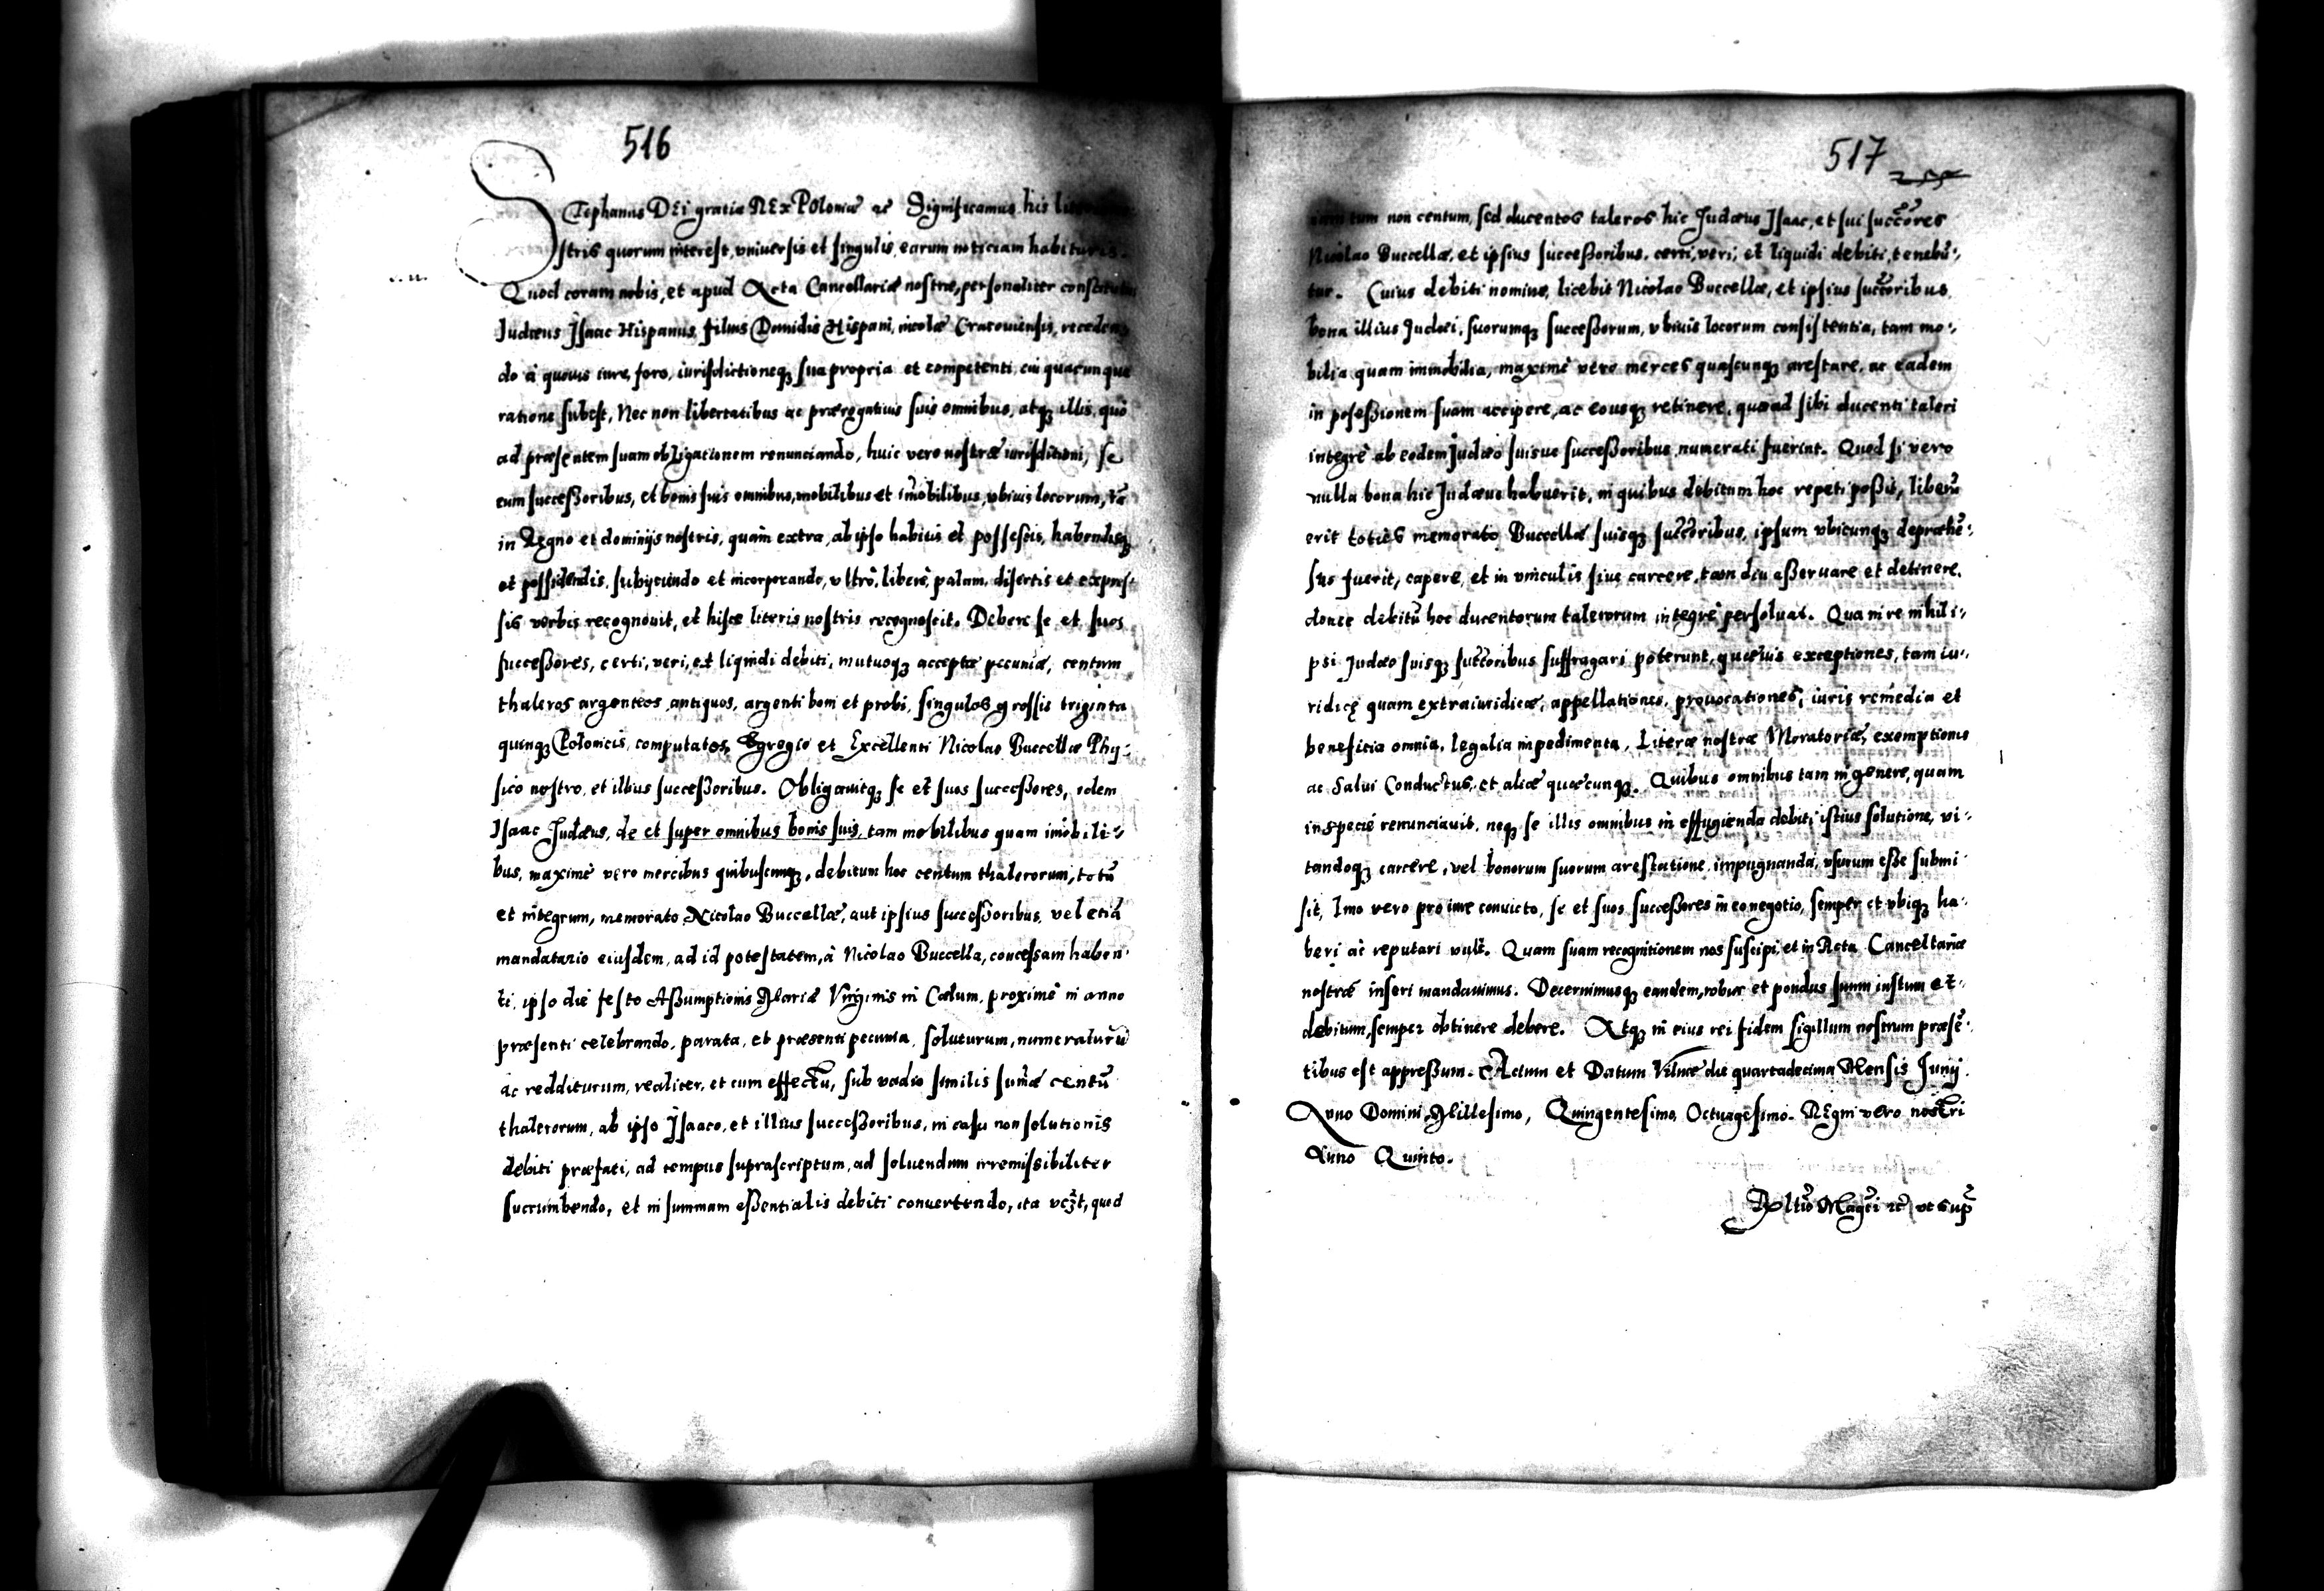 516
Stephanus DEi gratia REx POloniæ ac Significamus his
stris quorum interest, vniuersis et singulis, earum noticiam habituris.
Quod coram nobis, et apud Acta Cancellariæ nostræ, personaliter
Judæus Jsaac Hispanus, filius Hispani, incolæ Cracouiensis, receden
do à quouis iure, foro, iurisdictioneq3 sua propria et competenti, cui quacunque
ratione subest, Nec non libertatibus ac prærogatiuis suis omnibus, atq3 illis, quo
ad præsentem suam obligationem renunciando, huic vero nostræ iurisdictioni, se
cum successoribus, et bonis suis omnibus, mobilibus et im̄obilibus, vbiuis locorum, tā
in Regno et dominijs nostris, quàm extra, ab ipso habitis et possessis, habendisq3
et possidendis, subijciendo et incorporando, vltrò, liberè, palam, disertis et expres:
sis verbis recognouit, et hisce literis nostris recognoscit. Debere se et suos
successores, certi, veri, et liquidi debiti, mutuoq3 acceptæ pecuniæ, centum
thaleros argenteos antiquos, argenti boni et probi, singulos grossis triginta
quinq3 Polonicis, computatos, Egregio et Excellenti Nicolao Buccellæ Phy:
sico nostro, et illius successoribus. Obligauitq3 se et suos successores, idem
Isaac Judæus, de et super omnibus bonis suis, tam mobilibus quam im̄obili:
bus, maximè vero mercibus quibuscunq3, debitum hoc centum thalerorum, totū
et integrum, memorato Nicolao Buccellæ, aut ipsius successoribus, vel etiā
mandatario eiusdem, ad id potestatem, à Nicolao Buccella, concessam haben:
ti, ipso die festo Assumptionis Mariæ Virginis in Cœlum, proximè in anno
præsenti celebrando, parata, et præsenti pecunia, soluturum, numeraturū
ac redditurum, realiter, et cum effectu, sub vadio similis sum̄æ centū
thalerorum, ab ipso Jsaaco, et illius successoribus, in casu non solutionis
debiti præfati, ad tempus suprascriptum, ad soluendum irremissibiliter
succumbendo, et in summam essentialis debiti conuertendo, ita vcz̄t, quod
517
tum non centum, sed ducentos taleros hic Judæus Jsaac, et sui succ̄ores
Nicolao Buccellæ, et ipsius successoribus, certi, veri, et liquidi debiti, tenebū:
tur. Cuius debiti nomine, licebit Nicolao Buccellæ, et ipsius succ̄oribus,
bona illius Judæi, suorumq3 successorum, vbiuis locorum consistentia, tam mo:
bilia quam immobilia, maximè vero merces quascunq3 arestare, ac eadem
in possessionem suam accipere, ac eousq3 retinere, quoad sibi ducenti taleri
integrè ab eodem Judæo suisue successoribus numerati fuerint. Quod si vero
nulla bona hic Judæus habuerit, in quibus debitum hoc repeti possit, liberū
erit toties memorato Buccellæ suisq3 succ̄oribus, ipsum vbicunq3 depræhē:
sus fuerit, capere, et in vinculis siue carcere, tam diu asseruare et detinere,
donec debitū hoc ducentorum talerorum integrè persoluat. Qua in re nihil i:
psi Judæo suisq3 succ̄oribus suffragari poterunt, quæuis exceptiones, tam iu:
ridicę quam extraiuridicæ, appellationes, prouocationes, iuris remedia et
beneficia omnia, legalia impedimenta, Literæ nostræ Moratoriæ, exemptiones
ac Salui Conductus, et aliæ quæcunq3. Quibus omnibus tam in genere, quam
in specie renunciauit, neq3 se illis omnibus in effugienda debiti istius solutione, vi:
tandoq3 carcere, vel bonorum suorum arestatione impugnanda, vsurum esse submi
sit, Imo vero pro iure conuicto, se et suos successores in eo negotio, semper et vbiq3 ha:
beri ac reputari vult. Quam suam recognitionem nos suscipi, et in Acta Cancellariæ
nostræ inseri mandauimus. Decernimusq3 eandem, robur et pondus suum iustum et
debitum, semper obtinere debere. Atq3 in eius rei fidem sigillum nostrum præsē:
tibus est appressum. Actum et Datum Vilnæ die quartadecima Mensis Junij.
Anno Domini Millesimo, Quingentesimo, Octuagesimo. REgni vero nostri
Anno Quinto.
ut sup̄